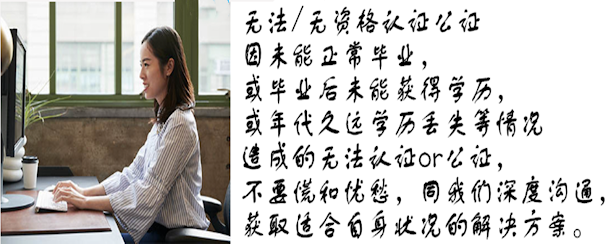 无法/无资格认证公证
因未能正常毕业，
或毕业后未能获得学历，
或年代久远学历丢失等情况
造成的无法认证or公证，
不要慌和忧愁，同我们深度沟通，
获取适合自身状况的解决方案。